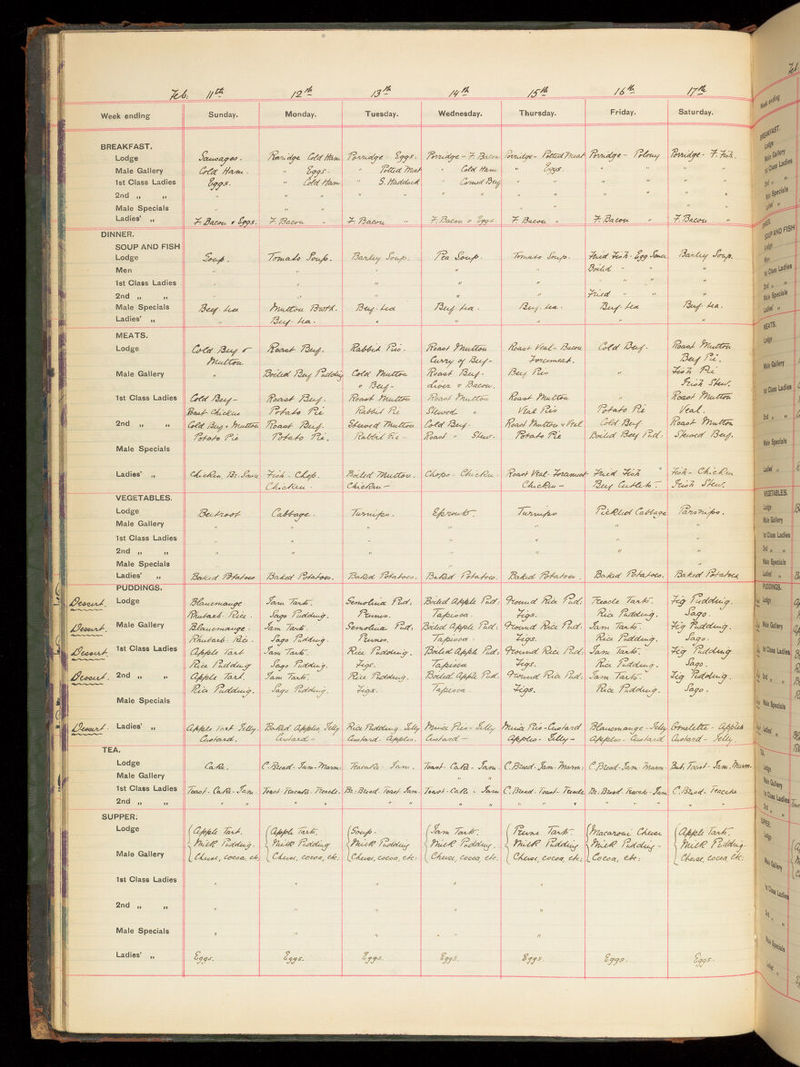 Feb: 11th 12th 13th 14th 15th 16th 17th
Week ending Sunday. Monday. Tuesday. Wednesday. Thursday. Friday. Saturday.
BREAKFAST.
Lodge Sausages. Porridge Cold Ham Porridge - Eggs. Porridge - F. Bacon Porridge - Potted Meat Porridge - Polony Porridge - F. Fish.
Male Gallery Cold Ham. " Eggs. " Potted Meat " Cold Ham " Eggs " " " "
1st Class Ladies Eggs. " Cold Ham " S. Haddock " Corned Beef " " " " " "
2nd " " " " " " " " " " " " " " "
Male Specials " " " " " " " " " " " " "
Ladies' " F. Bacon & Eggs. F. Bacon " F. Bacon " F. Bacon & Eggs F. Bacon " F. Bacon " F. Bacon "
DINNER.
SOUP AND FISH
Lodge Soup. Tomato Soup. Barley Soup. Pea Soup. Tomato Soup. Fried Fish - Egg Sauce Barley Soup.
Men " " " " " Boiled " " "
1st Class Ladies " " " " " " " "
2nd " " " " " " " Fried " " "
Male Specials Beef tea Mutton Broth. Beef tea Beef tea. Beef tea. Beef tea Beef tea.
Ladies' " " Beef tea. " " " " "
MEATS.
Lodge Cold Beef & Roast Beef. Rabbit Pie. Roast Mutton Roast Veal - Bacon Cold Beef. Roast Mutton
Mutton Curry of Beef - Forcemeat. Beef Pie.
Male Gallery " Boiled Beef Pudding Cold Mutton Roast Beef. Beef Pies " Fish Pie
& Beef - Liver & Bacon. Irish Stew.
1st Class Ladies Cold Beef - Roast Beef. Roast Mutton Roast Mutton Roast Mutton " Roast Mutton
Roast Chicken Potato Pie Rabbit Pie Stewed " Veal Pies Potato Pie Veal.
2nd " " Cold Beef & Mutton Roast Beef. Stewed Mutton Cold Beef. Roast Mutton & Veal Cold Beef Roast Mutton
Potato Pie Potato Pie. Rabbit Pie - Roast " Stew. Potato Pie Boiled Beef Pud. Stewed Beef.
Male Specials
Ladies' " Chicken Br. Sauce Fish - Chop. Boiled Mutton. Chops - Chicken. Roast Veal - Forcemeat Fried Fish " Fish - Chicken
Chicken. Chicken - Chicken - Beef Cutlets. Irish Stew.
VEGETABLES.
Lodge Beetroot Cabbage. Turnips. Sprouts. Turnips Pickled Cabbage Parsnips.
Male Gallery " " " " " " "
1st Class Ladies " " " " " " "
2nd " " " " " " " " "
Male Specials
Ladies' " Baked Potatoes Baked Potatoes. Baked Potatoes. Baked Potatoes. Baked Potatoes. Baked Potatoes. Baked Potatoes
PUDDINGS.
Dessert. Lodge Blancmange Jam Tart. Semolina Pud. Boiled Apple Pud. Ground Rice Pud. Treacle Tart. Fig Pudding.
Rhubarb. Rice. Sago Pudding. Prunes. Tapioca. Figs. Rice Pudding. Sago.
Dessert. Male Gallery Blancmange. Jam Tart. Semolina Pud. Boiled Apple Pud. Ground Rice Pud. Jam Tart. Fig Pudding.
Rhubarb. Rice. Sago Pudding. Prunes. Tapioca. Figs. Rice Pudding. Sago.
Dessert 1st Class Ladies Apple Tart Jam Tart. Rice Pudding. Boiled Apple Pud. Ground Rice Pud. Jam Tart. Fig Pudding
Rice Pudding Sago Pudding. Figs. Tapioca Figs. Rice Pudding. Sago.
Dessert. 2nd " " Apple Tart. Jam Tart. Rice Pudding. Boiled Apple Pud. Ground Rice Pud. Jam Tart. Fig Pudding.
Rice Pudding. Sago Pudding. Figs. Tapioca Figs. Rice Pudding. Sago.
Male Specials
Dessert. Ladies' " Apple Tart - Jelly. Baked Apples, Jelly Rice Pudding - Jelly Mince Pies - Jelly Mince Pies - Custard Blancmange - Jelly Omelette - Apples
Custard. Custard - Custard - Apples. Custard - Apples - Jelly - Apples - Custard Custard - Jelly
TEA.
Lodge Cake. C. Bread - Jam - Marm: Teacake - Jam. Toast - Cake - Jam C. Bread - Jam - Marm: C. Bread - Jam - Marm: But. Toast - Jam, Marm:
Male Gallery " "
1st Class Ladies Toast - Cake - Jam. Toast Teacake - Treacle. Br. Bread Toast Jam Toast - Cake - Jam C. Bread - Toast - Treacle Br. Bread Teacake Jam C. Bread - Teacake
2nd " " " " " " " " " " " " " " "
SUPPER:
Lodge Apple Tart. Apple Tart. Soup - Jam Tart. Prune Tart. Macaroni Cheese Apple Tart.
Milk Pudding. Milk Pudding Milk Pudding Milk Pudding. Milk Pudding Milk Pudding - Milk Pudding.
Male Gallery Cheese, Cocoa, etc. Cheese, Cocoa, etc: Cheese, Cocoa, etc: Cheese, Cocoa, etc. Cheese, Cocoa, etc: Cocoa, etc: Cheese, Cocoa, etc:
1st Class Ladies " " " " " " "
2nd " " " " " " " " "
Male Specials " " " " " " "
Ladies' " Eggs. Eggs. Eggs. Eggs. Eggs Eggs. Eggs.